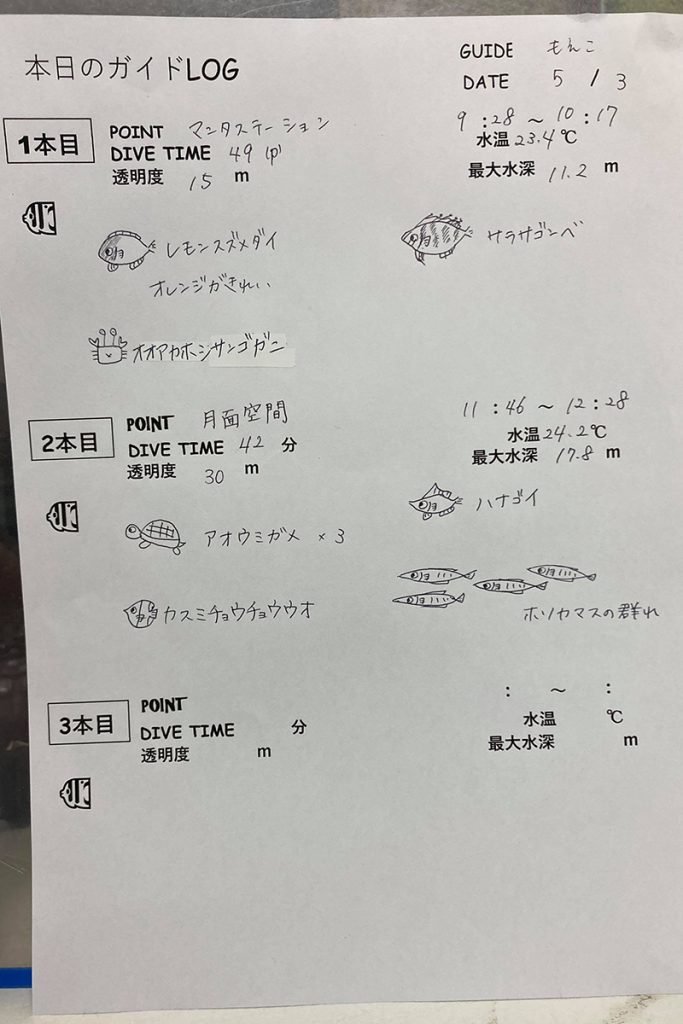 本日のガイドLOG
GUIDE もえこ
DATE 5 / 3
1本目
POINT マンタステーション
DIVE TIME 49 分
透明度 15 m
9 : 28 ～ 10 : 17
水温 23.4 ℃
最大水深 11.2 m
レモンスズメダイ
オレンジがきれい
サラサゴンベ
オオアカホシサンゴガニ
2本目
POINT 月面空間
DIVE TIME 42 分
透明度 30 m
11 : 46 ～ 12 : 28
水温 24.2 ℃
最大水深 17.8 m
アオウミガメ ×3
ハナゴイ
カスミチョウチョウウオ
ホソカマスの群れ
3本目
POINT
DIVE TIME 分
透明度 m
: ～ :
水温 ℃
最大水深 m